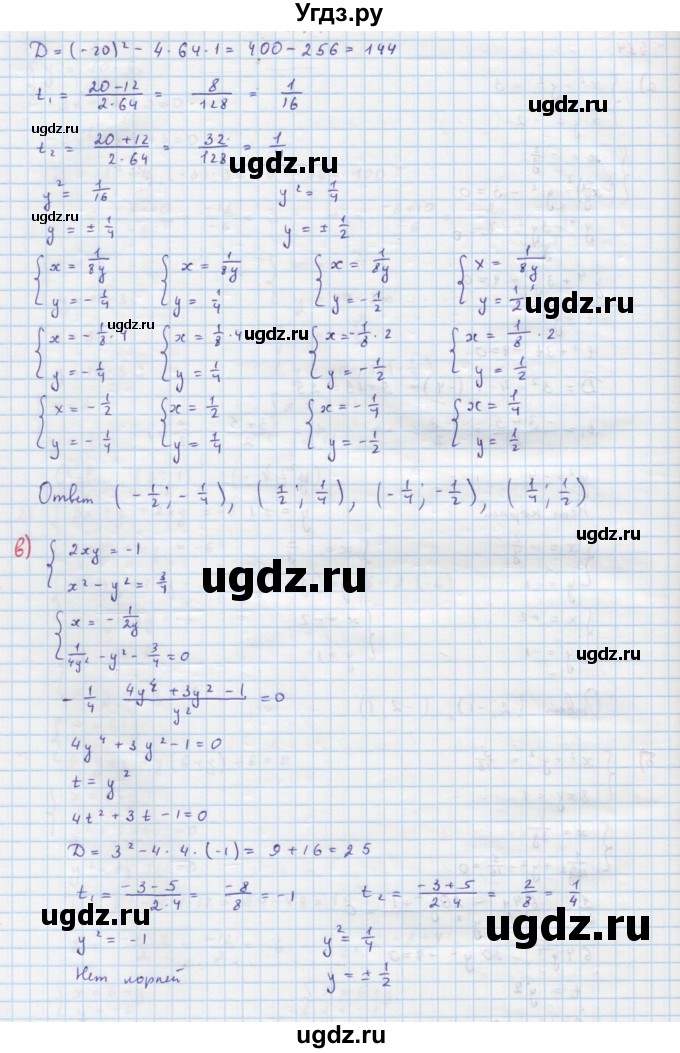 Угдз.ру
D = (-20)² - 4·64·1 = 400 - 256 = 144
t₁ = (20-12)/(2·64) = 8/128 = 1/16
ugdz.ru
ugdz.ru
t₂ = (20+12)/(2·64) = 32/128 = 1/
ugdz.ru
y² = 1/16 y² = 1/4
ugdz.ru
y = ± 1/4 y = ± 1/2
{ x = 1/8y { x = 1/8y { x = 1/8y { x = 1/8y
y = -1/4 y = 1/4 y = -1/2 y = 1/2
ugdz.ru ugdz.ru
{ x = -1/8·4 { x = 1/8·4 { x = -1/8·2 { x = 1/8·2
ugdz.ru
y = -1/4 y = 1/4 y = -1/2 y = 1/2
{ x = -1/2 { x = 1/2 { x = -1/4 { x = 1/4
y = -1/4 y = 1/4 y = -1/2 y = 1/2
Ответ (-1/2; -1/4), (1/2; 1/4), (-1/4; -1/2), (1/4; 1/2)
ugdz.ru
в) { 2xy = -1
x² - y² = 3/4
ugdz.ru
{ x = -1/2y
1/4y² - y² - 3/4 = 0
ugdz.ru
-1/4 (4y⁴ + 3y² - 1)/y² = 0
4y⁴ + 3y² - 1 = 0
ugdz.ru
t = y²
4t² + 3t - 1 = 0
D = 3² - 4·4·(-1) = 9 + 16 = 25
t₁ = (-3-5)/(2·4) = -8/8 = -1 t₂ = (-3+5)/(2·4) = 2/8 = 1/4
ugdz.ru ugdz.ru
y² = -1 y² = 1/4
Нет корней y = ± 1/2
ugdz.ru